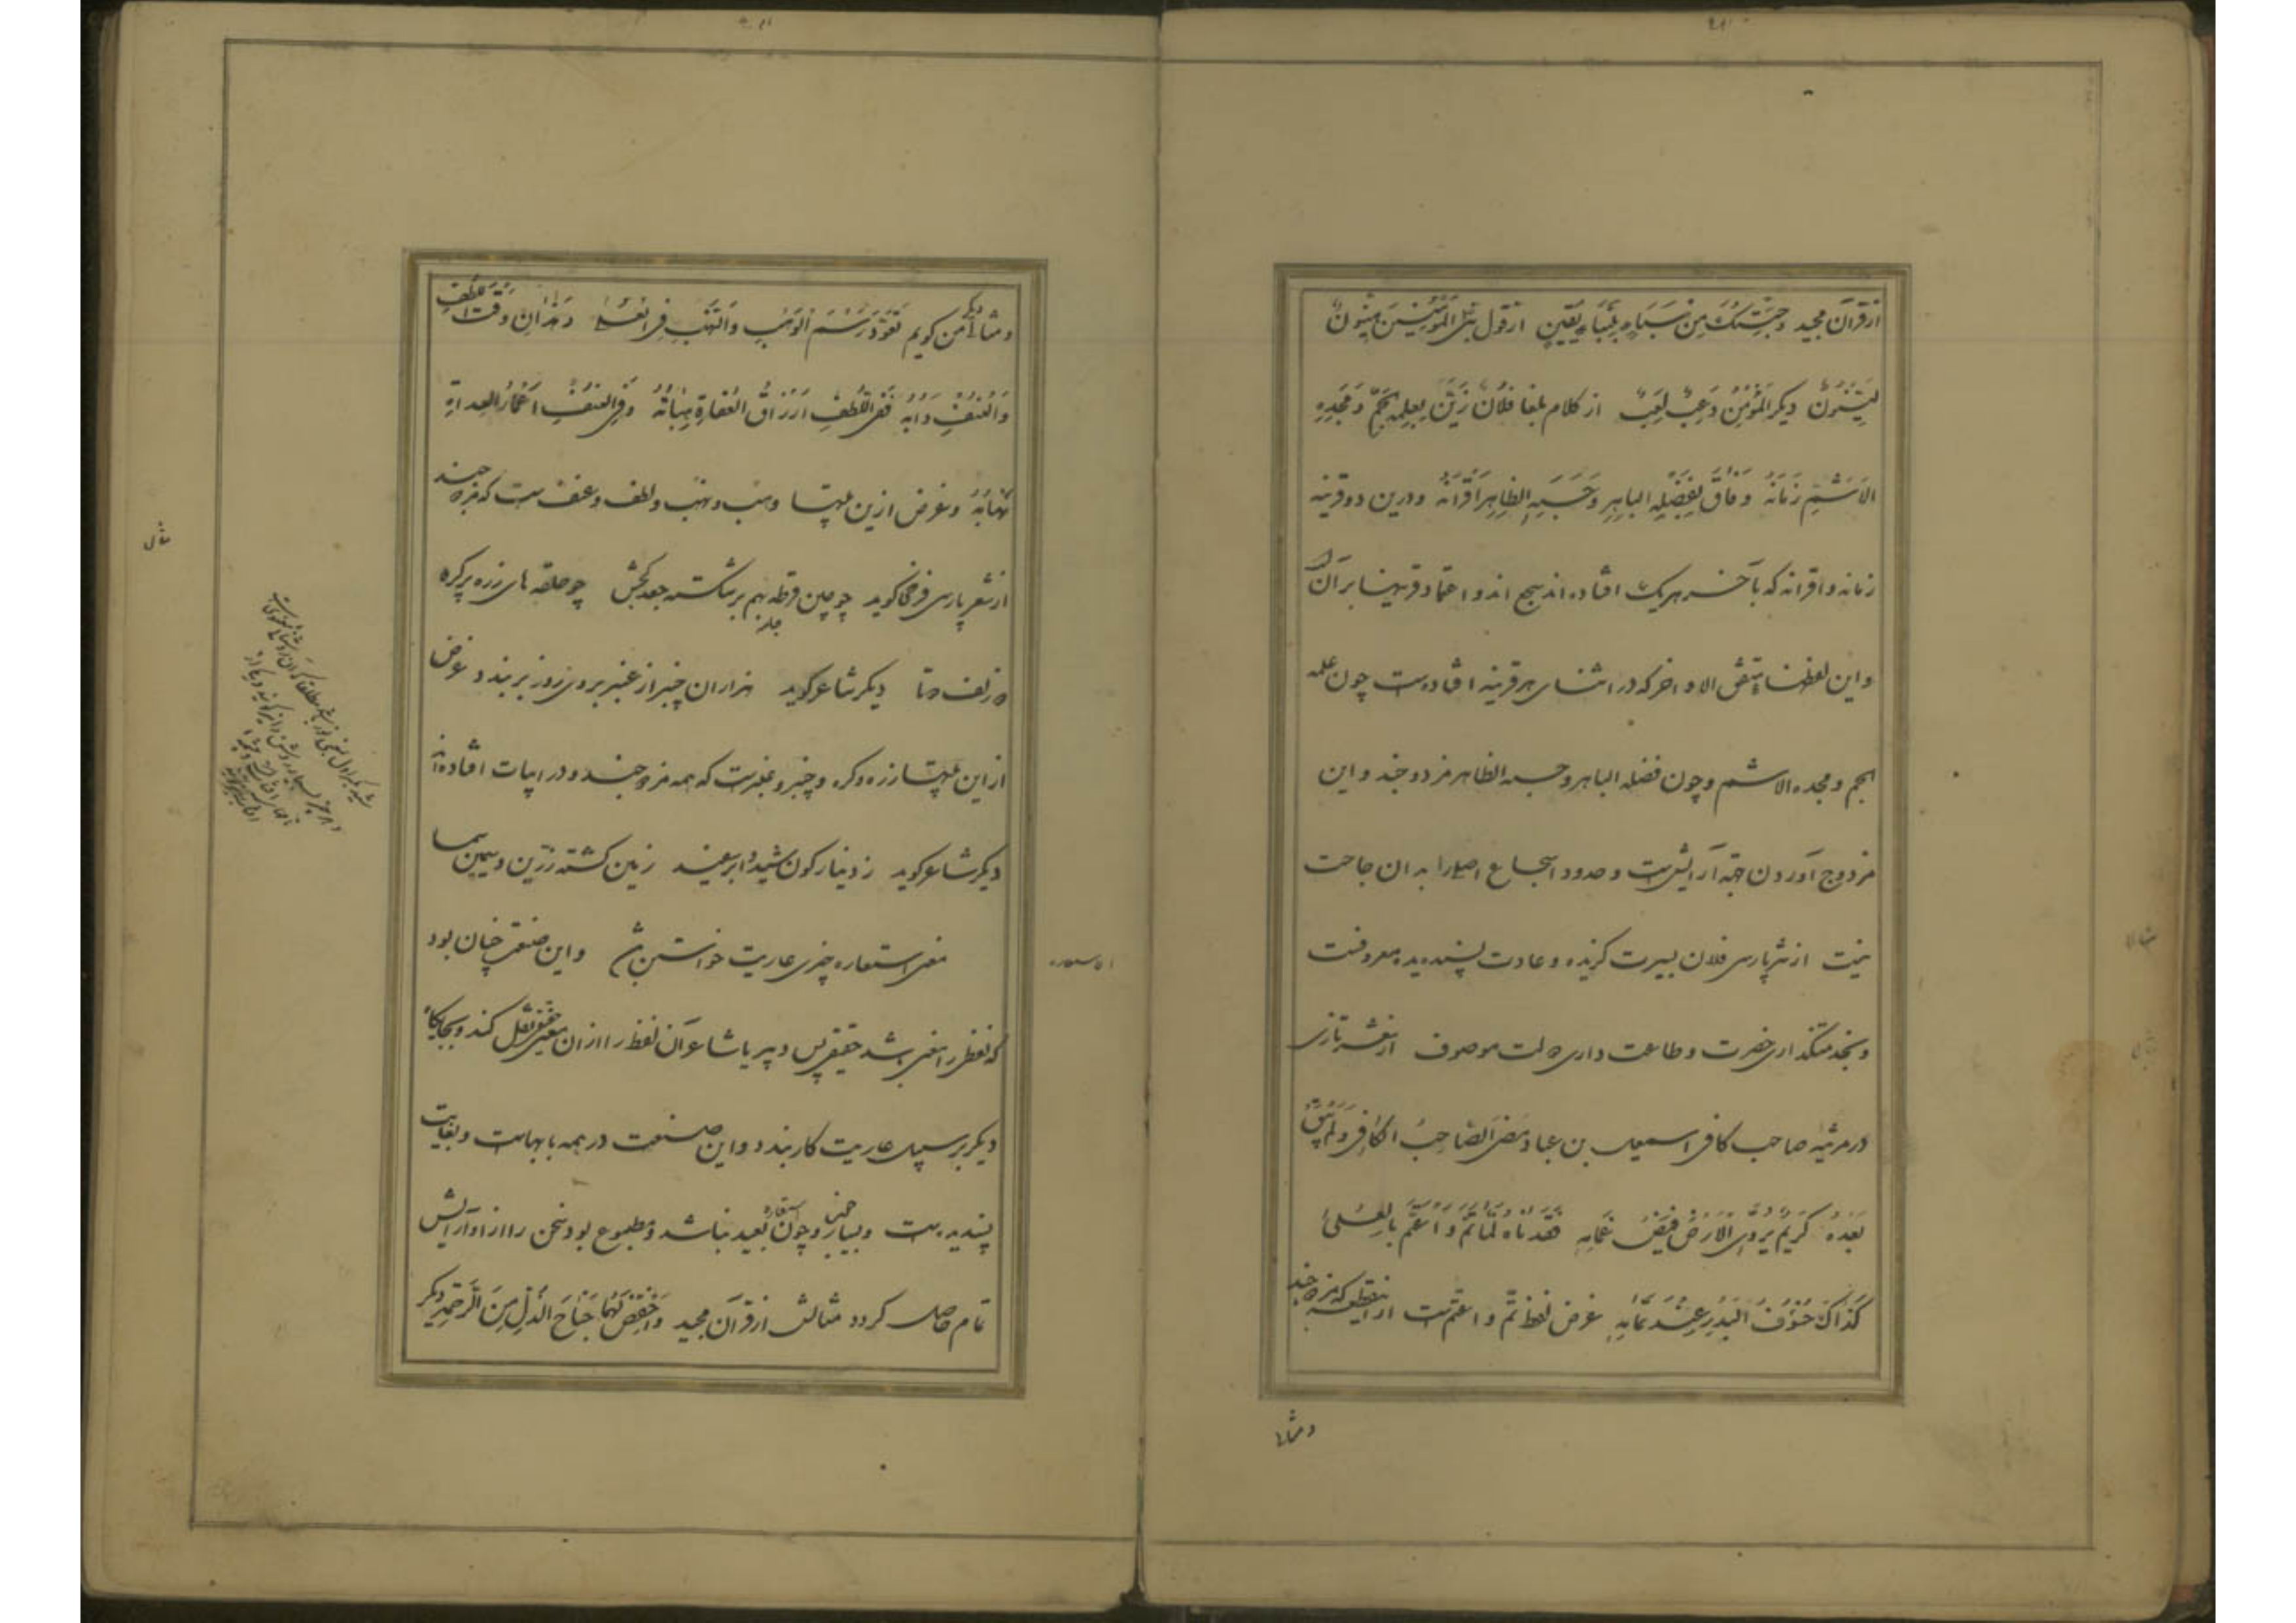 از قرآن مجید وَجِئْتُكَ مِنْ سَبَاءٍ بِنَبَاءٍ يَقينٍ از قول نبی المؤمنون هینون
لینون دیگر المؤمن دعب لعب از کلام بلغا فلان زین بعلمه الجم ومجده
الاشم زمانه وفاق بفضله الباهر وحسبه الظاهر اقرانه ودرین دو قرینه
زمانه واقرانه که بآخر هر یک افتاده اند سجع اند واعتماد قرینها بر آن
واین لفظهاء متفق الاواخر که در اثنای هر قرینه افتاده است چون علمه
الجم ومجده الاشم وچون فضله الباهر وحسبه الظاهر مزدوجند واین
مزدوج آوردن جهة آرایش است وحدود اسجاع اصلا بدان حاجت
نیست از نثر پارسی فلان بسیرت گزیده وعادت پسندیده معروفست
وبخدمتکذاری حضرت وطاعت داری دولت موصوف از شعر تازی
در مرثیه صاحب کافی اسمعیل بن عباد مَضَی الصّاحِبُ الكَافِی وَلَمْ يَبْقَ
بَعْدَهُ كَرِيمٌ يُرَوِّی الْاَرْضَ فَيْضُ غَمَامِهِ فَقَدْنَاهُ لَمَّا تَمَّ وَاعْتَمَّ بِالعُلیٰ
كَذَاكَ خُسُوفُ الْبَدْرِ عِنْدَ تَمَامِهِ غرض لفظ تم واعتم است ازین قطعه که مزدوجند
ومثالی
ومثالی دیگر من گویم تَعَوَّدَ رَسْمَ الوَهْبِ وَالنَّهْبِ فِی العُلیٰ وَهٰذَانِ وَقْتَ اللُّطْفِ
وَالْعُنْفِ دَابُهُ فَفِی اللُّطْفِ اَرْزَاقُ العُفَاةِ هِبَاتُهُ وَفِی العُنْفِ اَعْمَارُ العِداةِ
نِهَابُهُ وغرض ازین بیتها وهب ونهب ولطف وعنف است که مزدوجند
از شعر پارسی فرخی گوید چو چین قرطه بهم برشکسته جعد کشش چو حلقه های زره پر گره
دو زلف دوتا دیگر شاعر گوید هزاران چنبر از عنبر بروی روز بربندد غرض
از این بیتها زره وگره وچنبر وعنبرست که همه مزدوجند ودر ابیات افتاده اند
دیگر شاعر گوید ز دینارگون بید وابر سپید زمین گشته زرّین وسیمین سما
الاستعاره
معنی استعاره چیزی عاریت خواستن باشد واین صنعت چنان بود
که لفظ را معنی باشد حقیقی پس دبیر یا شاعر آن لفظ را از آن معنی حقیقی نقل کند وبجایگاه
دیگر بر سبیل عاریت کار بندد واین صنعت در همه بابهاست وبغایت
پسندیده است وچون استعاره بعید نباشد ومطبوع بود سخن را از او آرایش
تمام حاصل گردد مثالش از قرآن مجید وَاخْفِضْ لَهُمَا جَنَاحَ الذُّلِّ مِنَ الرَّحْمَةِ دیگر